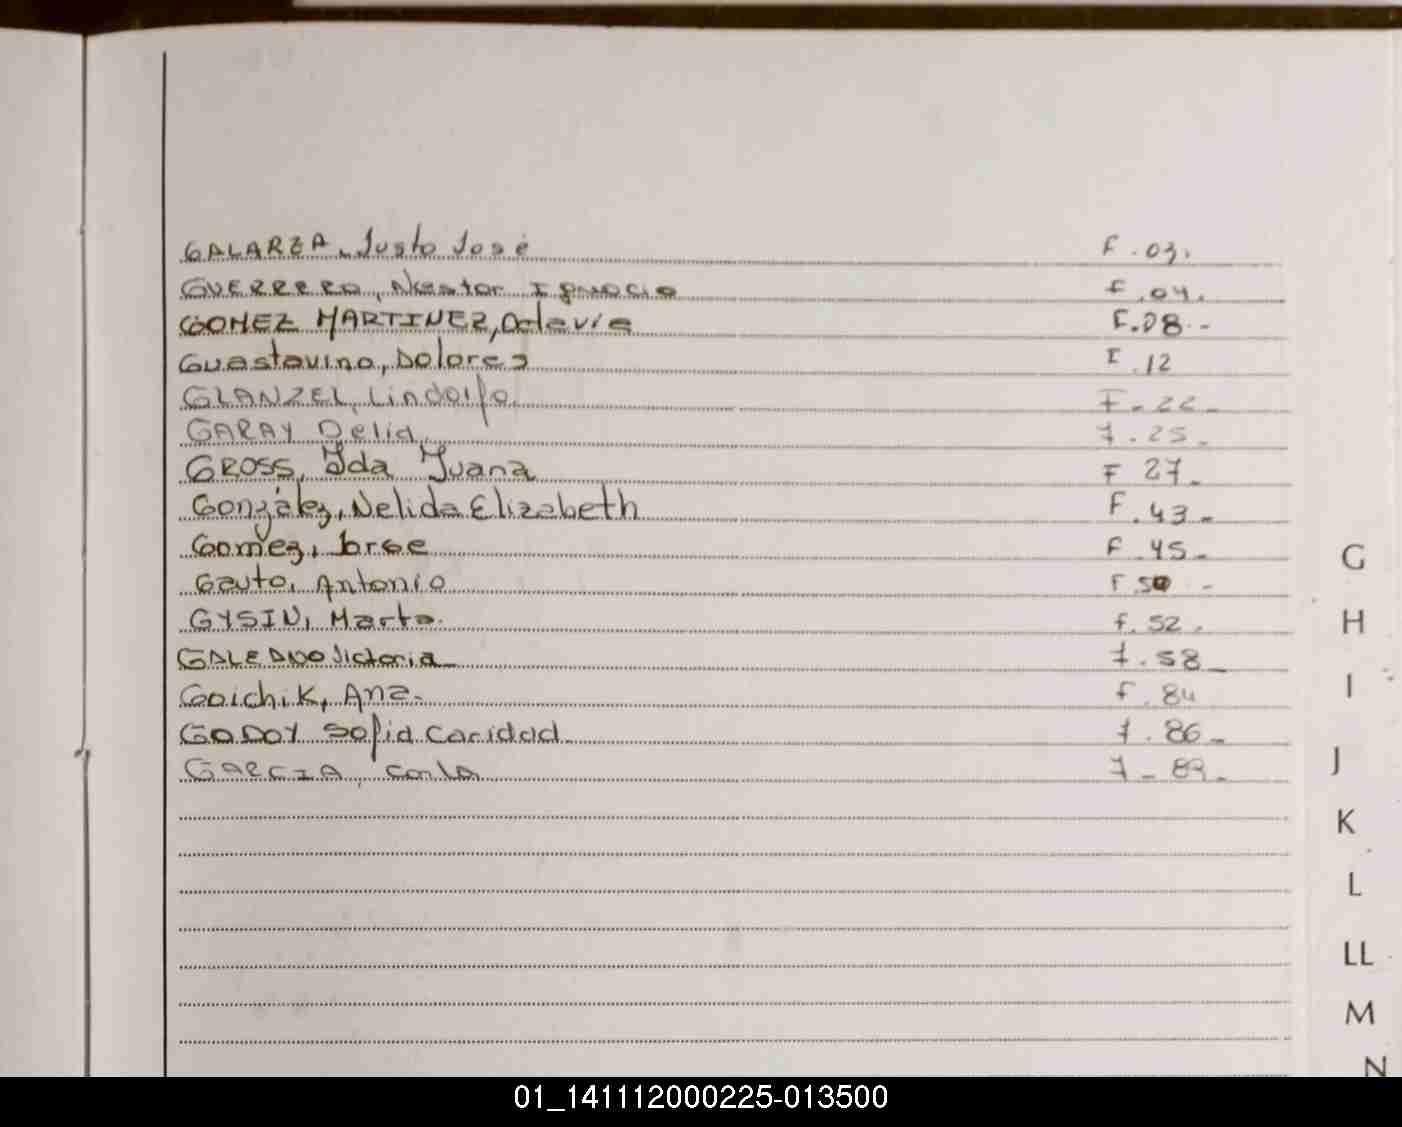 GALARZA, Justo José F. 03.
GUERRERO, Nestor Ignacio F. 04.
GOMEZ MARTINEZ, Octavio F. 08.-
Guastavino, Dolores F. 12
GLANZEL, Lindolfo F. 22-
GARAY Delia, F. 25-
GROSS, Ida Juana F 27-
González, Nelida Elizabeth F. 43-
Gomez, Jorge F 45-
Gauto, Antonio F. 50 -
GYSIN, Marta. F. 52.
GALEANO Victoria F. 58-
Goichik, Ana. F. 84
GODOY Sofia Caridad F. 86-
GARCIA, Carla F- 89-
G
H
I
J
K
L
LL
M
N
01_141112000225-013500